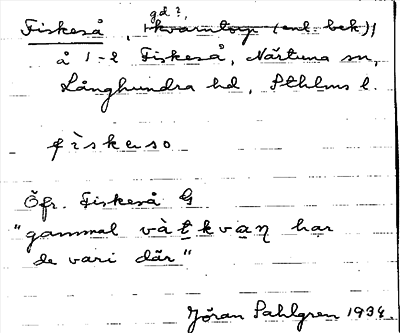 gd?,
Fiskeså, kvarntorp (enl. bek)
å 1-2 Fiskeså, Närtuna sn,
Långhundra hd, Sthlms l.
fìskuso
Öfr. Fiskeså G
"gammal vàtkvan har
de vari där"
Jöran Sahlgren 1934.